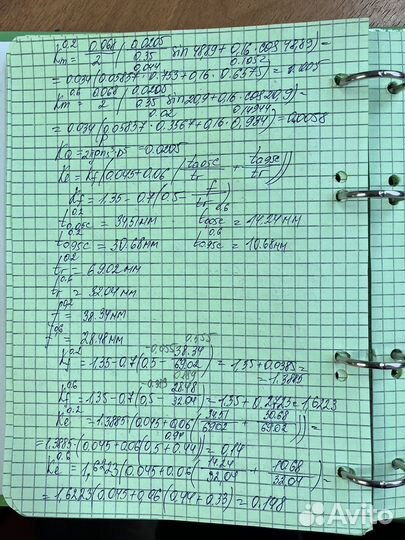 K_m^0.2 = 0.068/2 (0.0205/0.35 sin 48.89 + 0.16 · cos 48.89) =
0.044 0.1052
= 0.034 (0.05857 · 0.753 + 0.16 · 0.6575) = 0.005
K_m^0.6 = 0.068/2 (0.0205/0.35 sin 20.9 + 0.16 · cos 20.9) =
0.02 0.14944
= 0.034 (0.05857 · 0.3567 + 0.16 · 0.934) = 0.0058
= 0.0205
K_e = K_f (0.045 + 0.06 (t_0.05c/t_r + t_0.95c/t_r))
K_f = 1.35 - 0.7 (0.5 - f/t_r)
t_0.05c^0.2 = 34.51 мм t_0.05c^0.6 = 14.24 мм
t_0.95c^0.2 = 30.68 мм t_0.95c^0.6 = 10.68 мм
t_r^0.2 = 69.02 мм
t_r^0.6 = 32.04 мм
f^0.2 = 38.34 мм
f^0.6 = 28.48 мм
0.555
K_f^0.2 = 1.35 - 0.7 (0.5 - 38.34/69.02) = 1.35 + 0.0385 =
= 1.3885
0.889
K_f^0.6 = 1.35 - 0.7 (0.5 - 28.48/32.04) = 1.35 + 0.2723 = 1.6223
K_e^0.2 = 1.3885 (0.045 + 0.06 (34.51/69.02 + 30.68/69.02)) =
0.94
= 1.3885 (0.045 + 0.06 (0.5 + 0.44)) = 0.14
K_e^0.6 = 1.6223 (0.045 + 0.06 (14.24/32.04 + 10.68/32.04)) =
= 1.6223 (0.045 + 0.06 (0.44 + 0.33) = 0.148
Avito